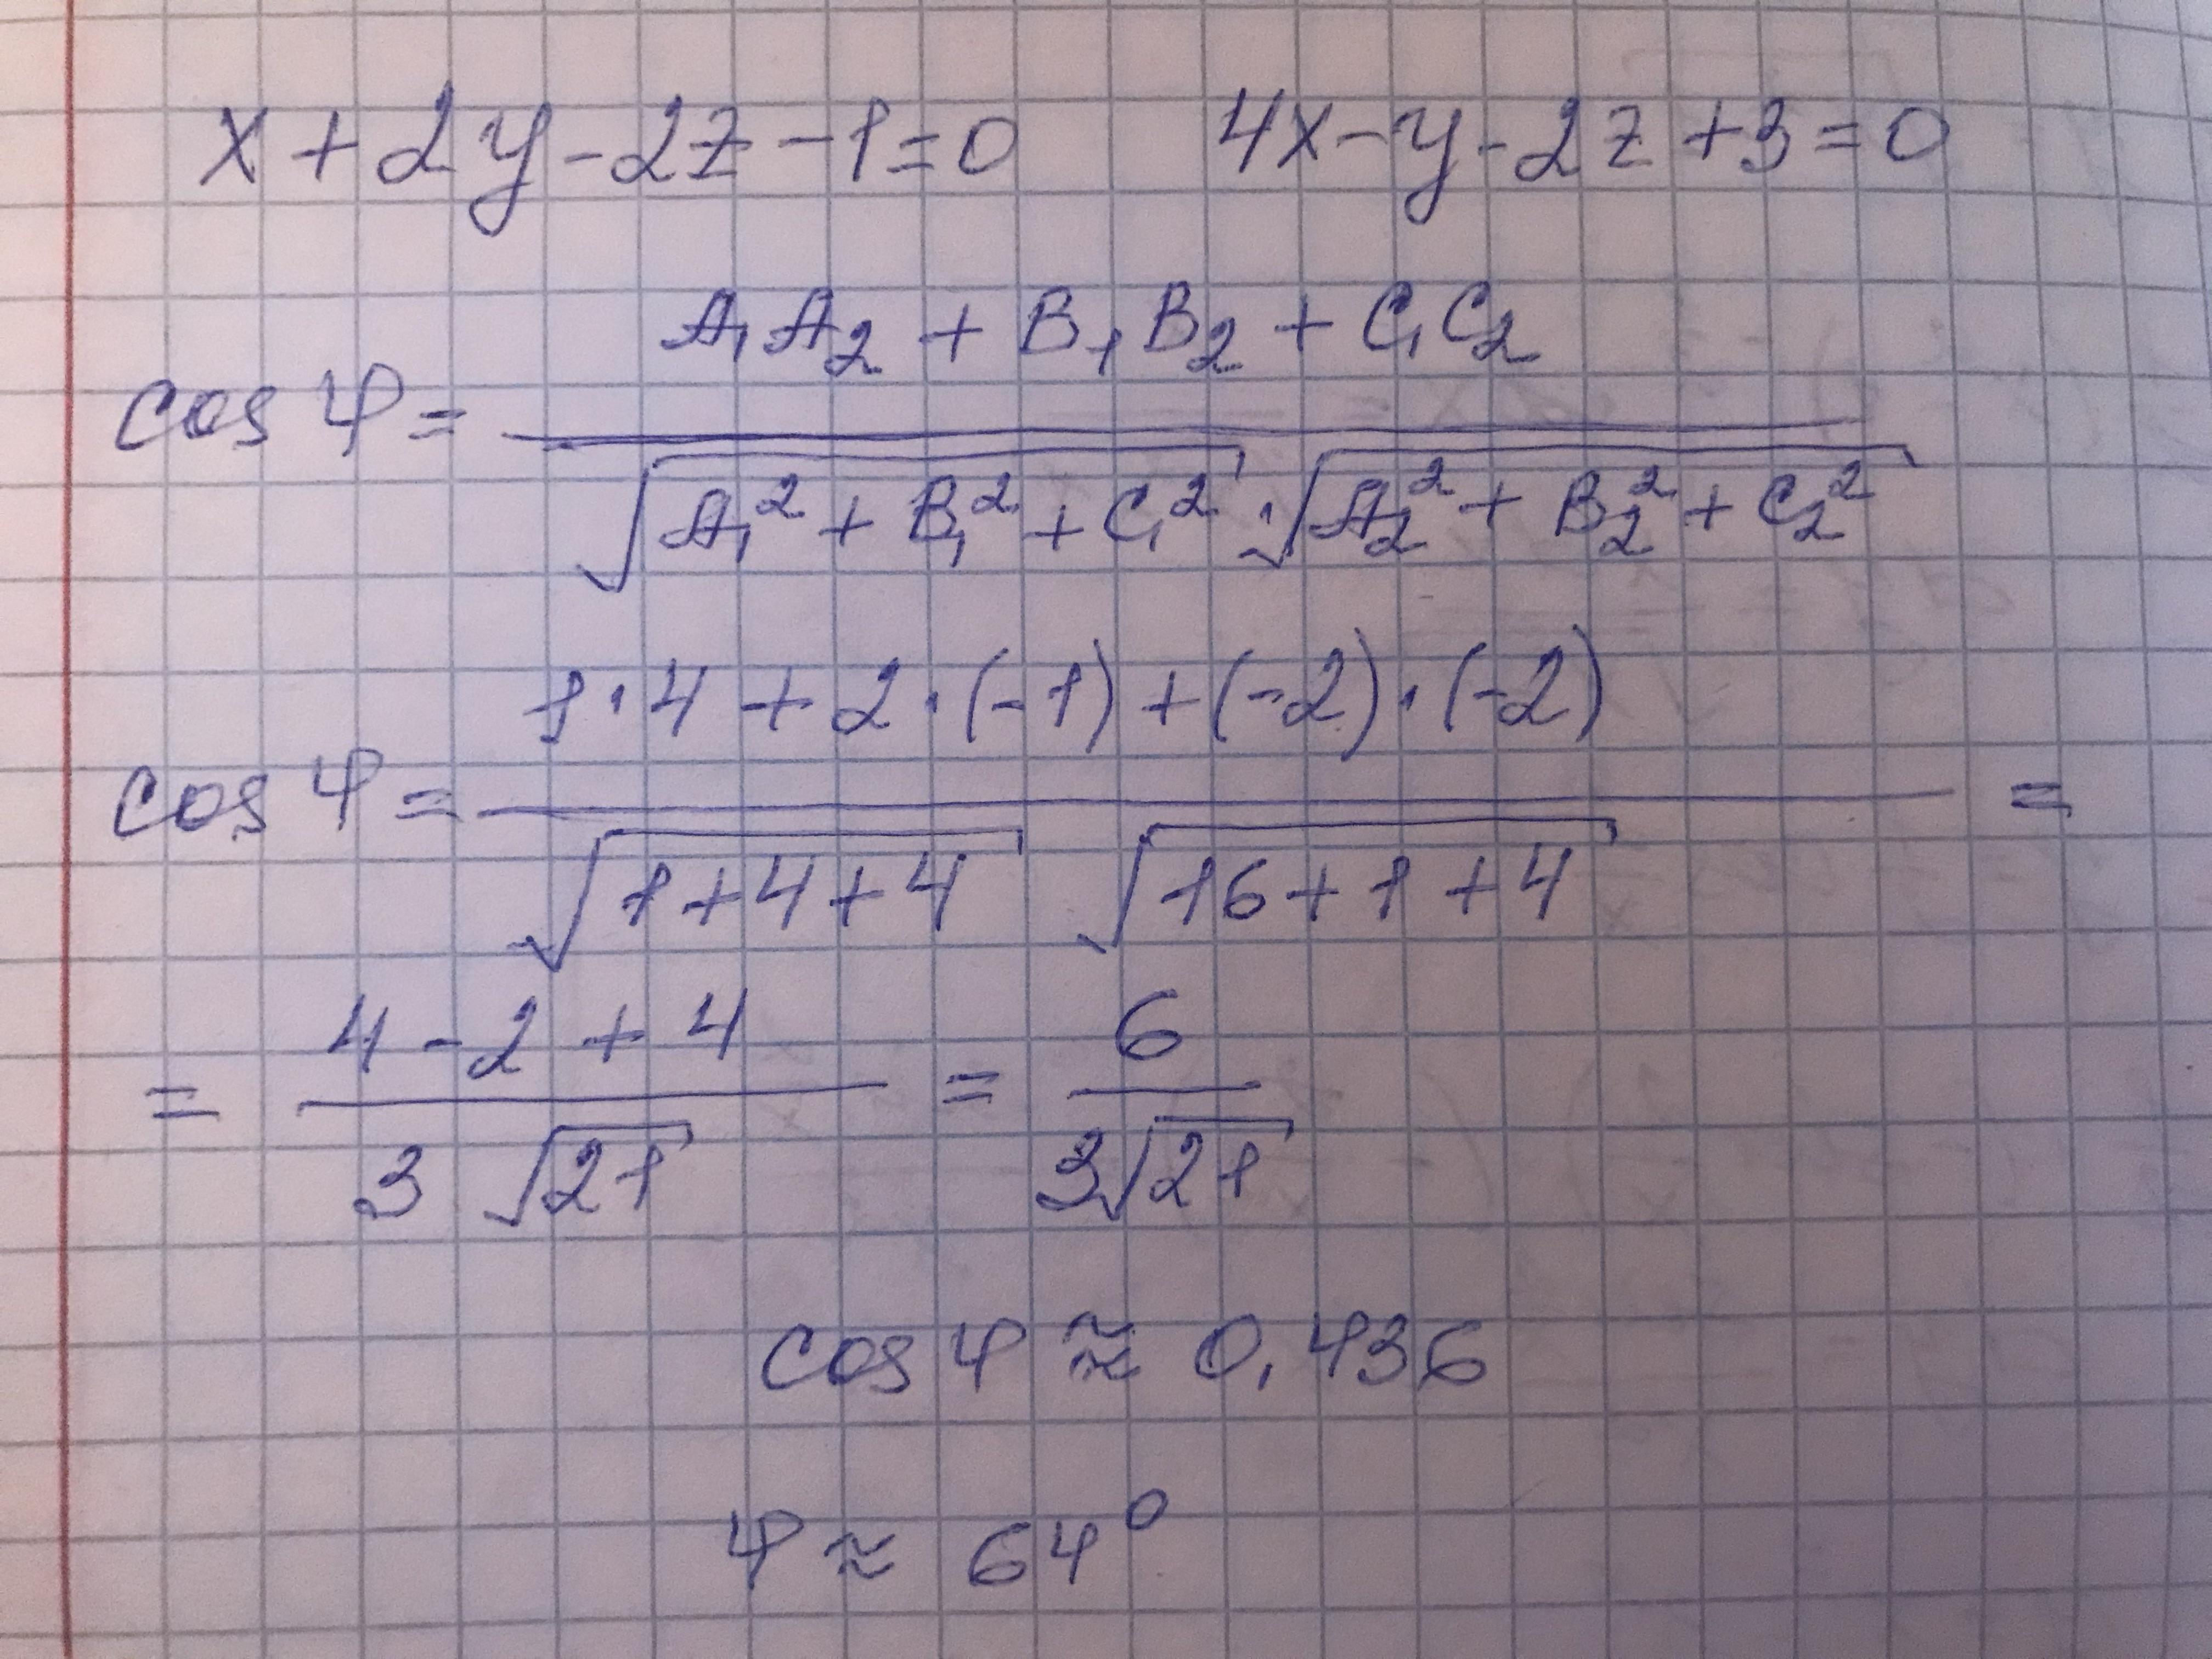 x + 2y - 2z - 1 = 0    4x - y - 2z + 3 = 0
cos φ = (A₁A₂ + B₁B₂ + C₁C₂) / (√(A₁² + B₁² + C₁²) · √(A₂² + B₂² + C₂²))
cos φ = (1 · 4 + 2 · (-1) + (-2) · (-2)) / (√(1 + 4 + 4) √(16 + 1 + 4)) =
= (4 - 2 + 4) / (3 √21) = 6 / (3√21)
cos φ ≈ 0,436
φ ≈ 64°